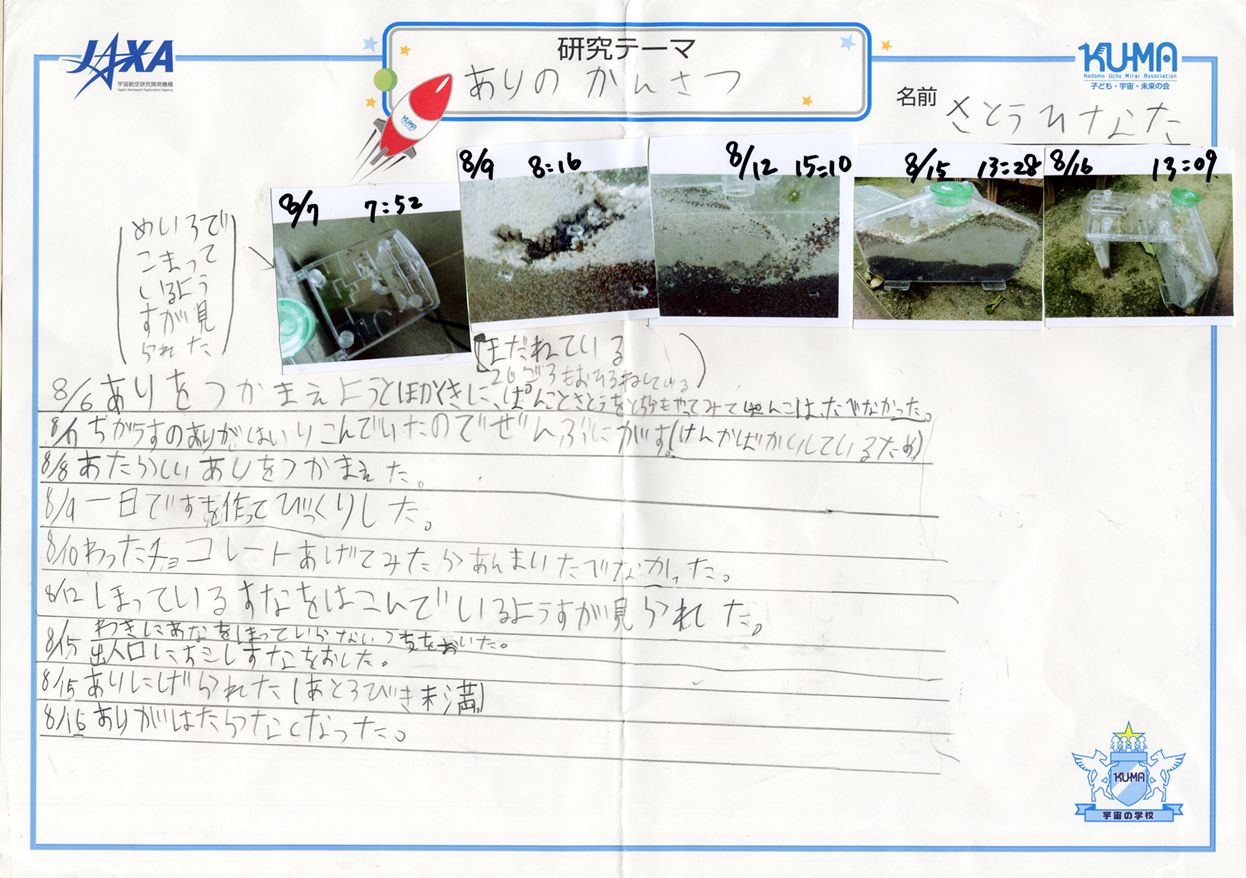 JAXA
宇宙航空研究開発機構
Japan Aerospace Exploration Agency
研究テーマ
ありのかんさつ
KU-MA
Kodomo Uchu Mirai Association
子ども・宇宙・未来の会
名前 さとうひなた
KU-MA
8/7 7:52
8/9 8:16
8/12 15:10
8/15 13:28
8/16 13:09
めいろで
こまって
いるよう
すが見
られた
まだねている
もおひるねしている
8/6 ありをつかまえようとほかくきに、ぱんことさとうをどちらもやってみて ぱんこは、たべなかった。
8/7 ちがうすのありがはいりこんでいたのでぜんぶにがす。(けんかばかりしているため)
8/8 あたらしいありをつかまえた。
8/9 一日ですを作ってびっくりした。
8/10 わったチョコレートあげてみたらあんまいたべなかった。
8/12 ほっているすなをはこんでいるようすが見られた。
8/15 わきにあなをほっていらないつちをおいた。
出入口にすこしすなをおした。
8/15 ありにげられた(あところびき未満)
8/16 ありがはたらかなくなった。
KU-MA
宇宙の学校